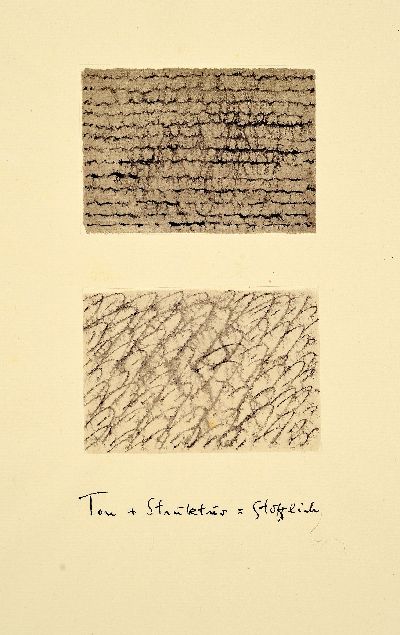 Ton + Struktur = Stofflich